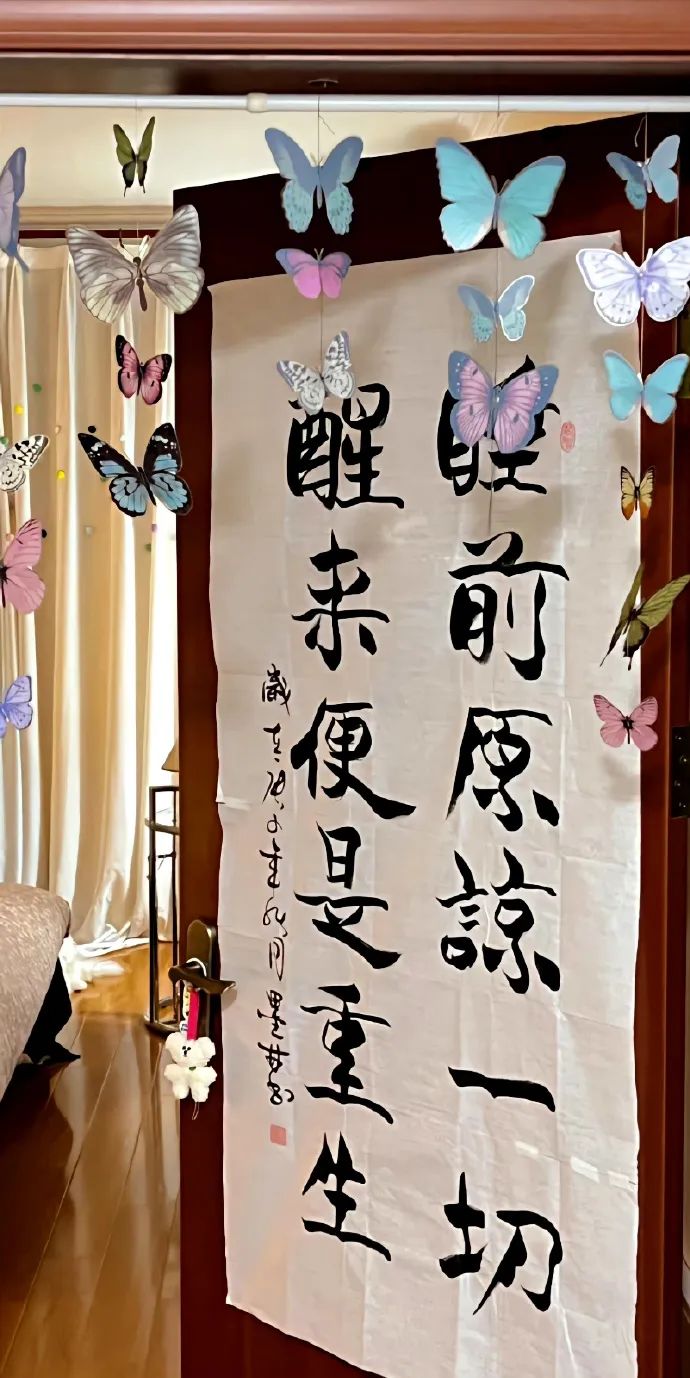 睡前原諒一切
醒来便是重生
歲在庚子重秋月墨林書